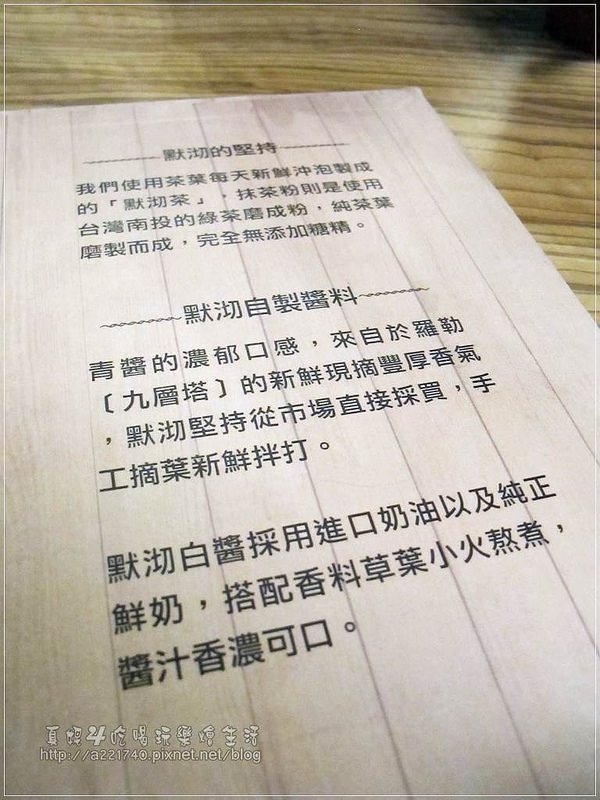 默沏的堅持
我們使用茶葉每天新鮮沖泡製成
的「默沏茶」，抹茶粉則是使用
台灣南投的綠茶磨成粉，純茶葉
磨製而成，完全無添加糖精。
默沏自製醬料
青醬的濃郁口感，來自於羅勒
〔九層塔〕的新鮮現摘豐厚香氣
，默沏堅持從市場直接採買，手
工摘葉新鮮拌打。
默沏白醬採用進口奶油以及純正
鮮奶，搭配香料草葉小火熬煮，
醬汁香濃可口。
吃喝玩樂燴生活
http://a221740.pixnet.net/blog